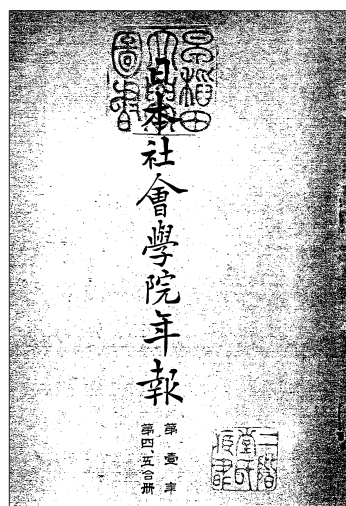 日本社會學院年報
第壹年
第四、五合冊